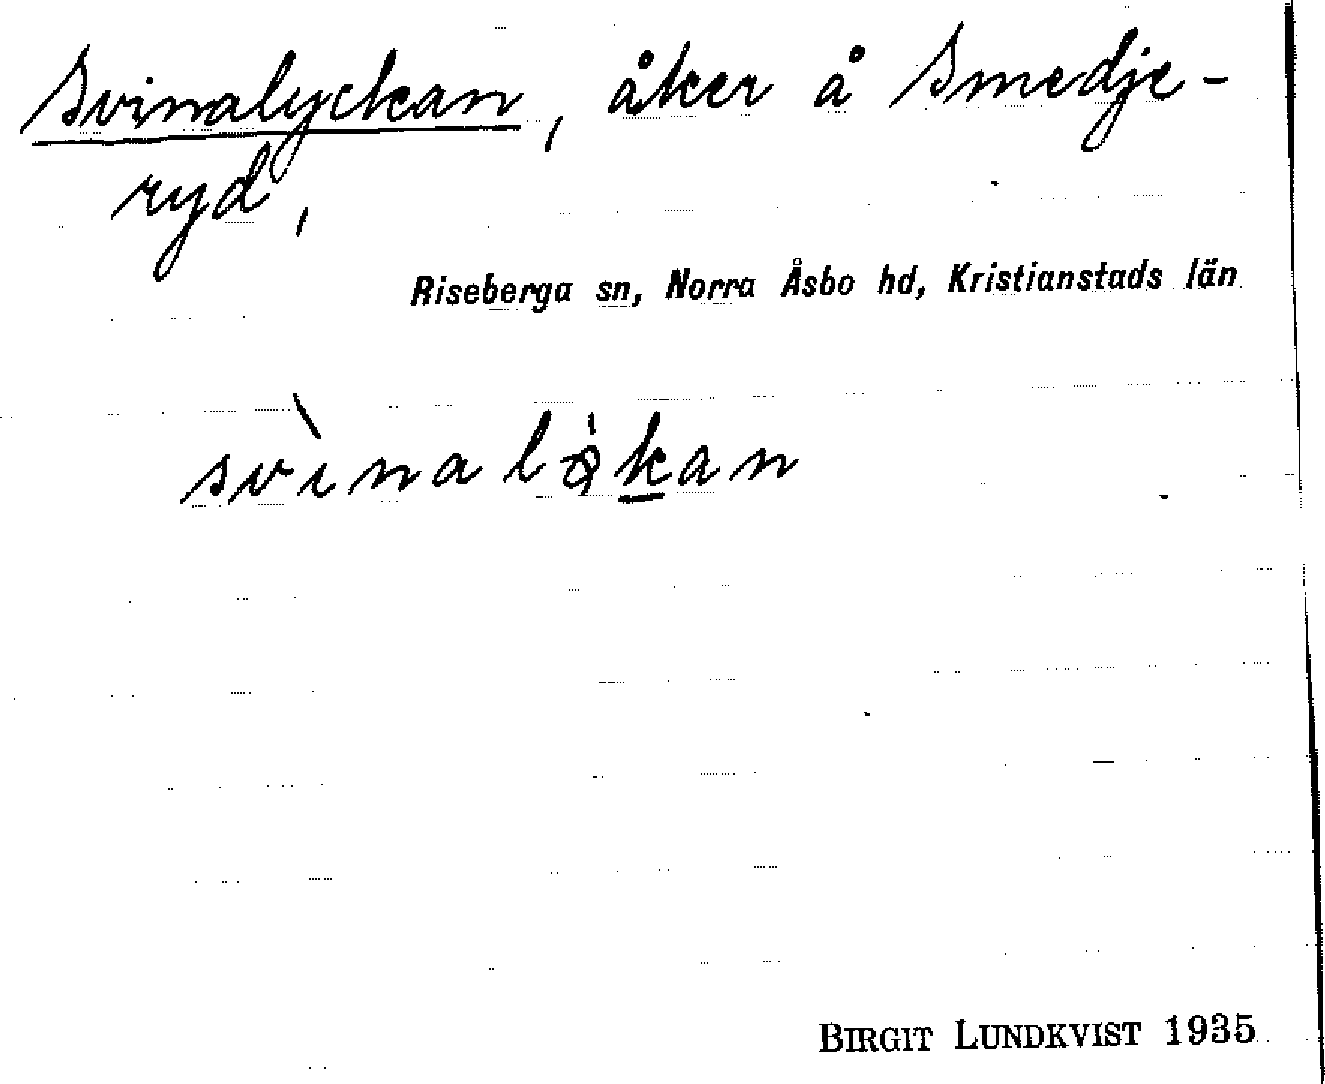 Svinalyckan, åker å Smedje-
ryd,
Riseberga sn, Norra Åsbo hd, Kristianstads län
BIRGIT LUNDKVIST 1935